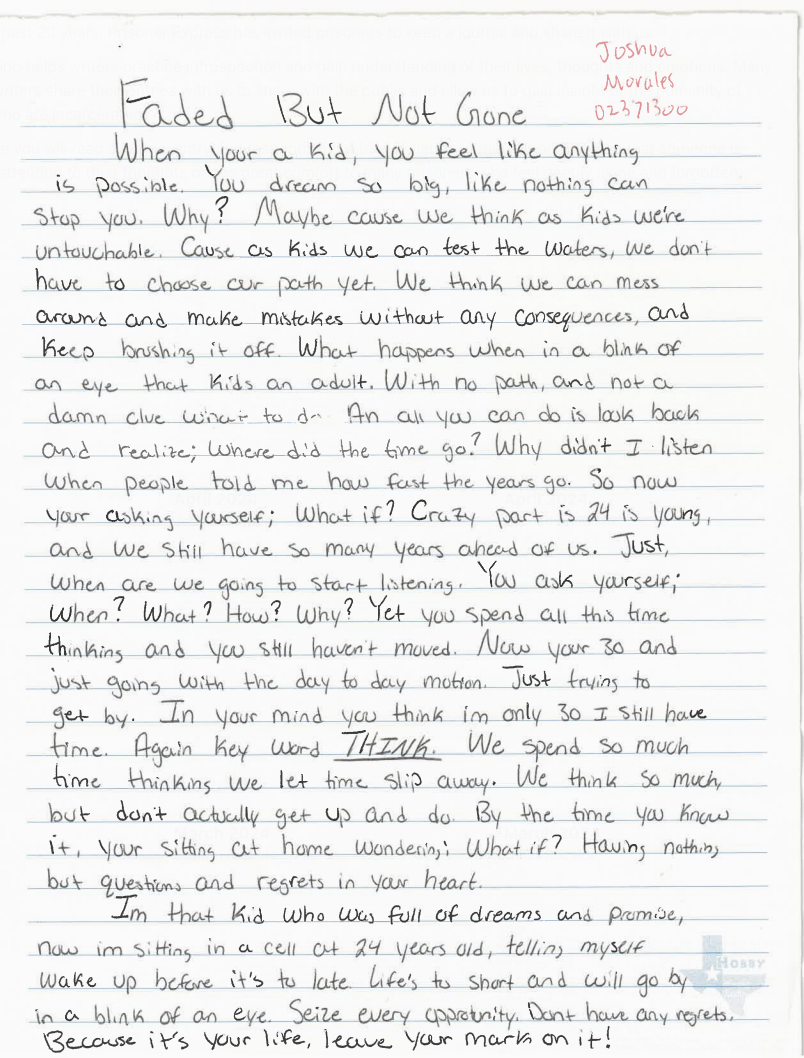 Joshua
Morales
02371300
Faded But Not Gone
When your a kid, you feel like anything
is possible. You dream so big, like nothing can
stop you. Why? Maybe cause we think as kids we're
untouchable. Cause as kids we can test the waters, we don't
have to choose our path yet. We think we can mess
around and make mistakes without any consequences, and
keep brushing it off. What happens when in a blink of
an eye that kids an adult. With no path, and not a
damn clue what to do An all you can do is look back
and realize; Where did the time go? Why didn't I listen
when people told me how fast the years go. So now
your asking yourself; What if? Crazy part is 24 is young,
and we still have so many years ahead of us. Just,
when are we going to start listening. You ask yourself;
When? What? How? Why? Yet you spend all this time
thinking and you still haven't moved. Now your 30 and
just going with the day to day motion. Just trying to
get by. In your mind you think im only 30 I still have
time. Again key word THINK. We spend so much
time thinking we let time slip away. We think so much,
but don't actually get up and do. By the time you know
it, your sitting at home wondering; What if? Having nothing
but questions and regrets in your heart.
Im that kid who was full of dreams and promise,
now im sitting in a cell at 24 years old, telling myself
wake up before it's to late. Life's to short and will go by
in a blink of an eye. Seize every opprotunity. Dont have any regrets.
Because it's your life, leave your mark on it!
HOBBY